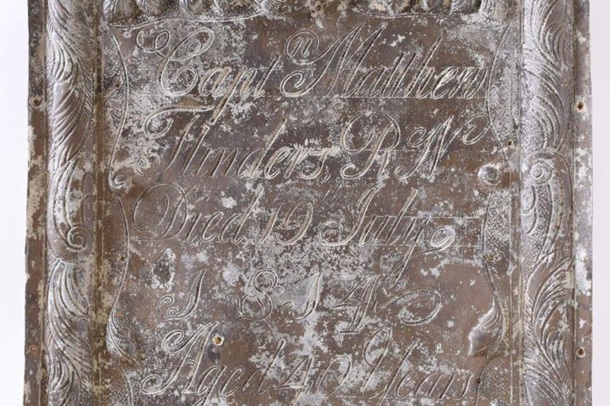 Capt n Matthew
Flinders, R N
Died 19 July
1814
Aged 40 Years